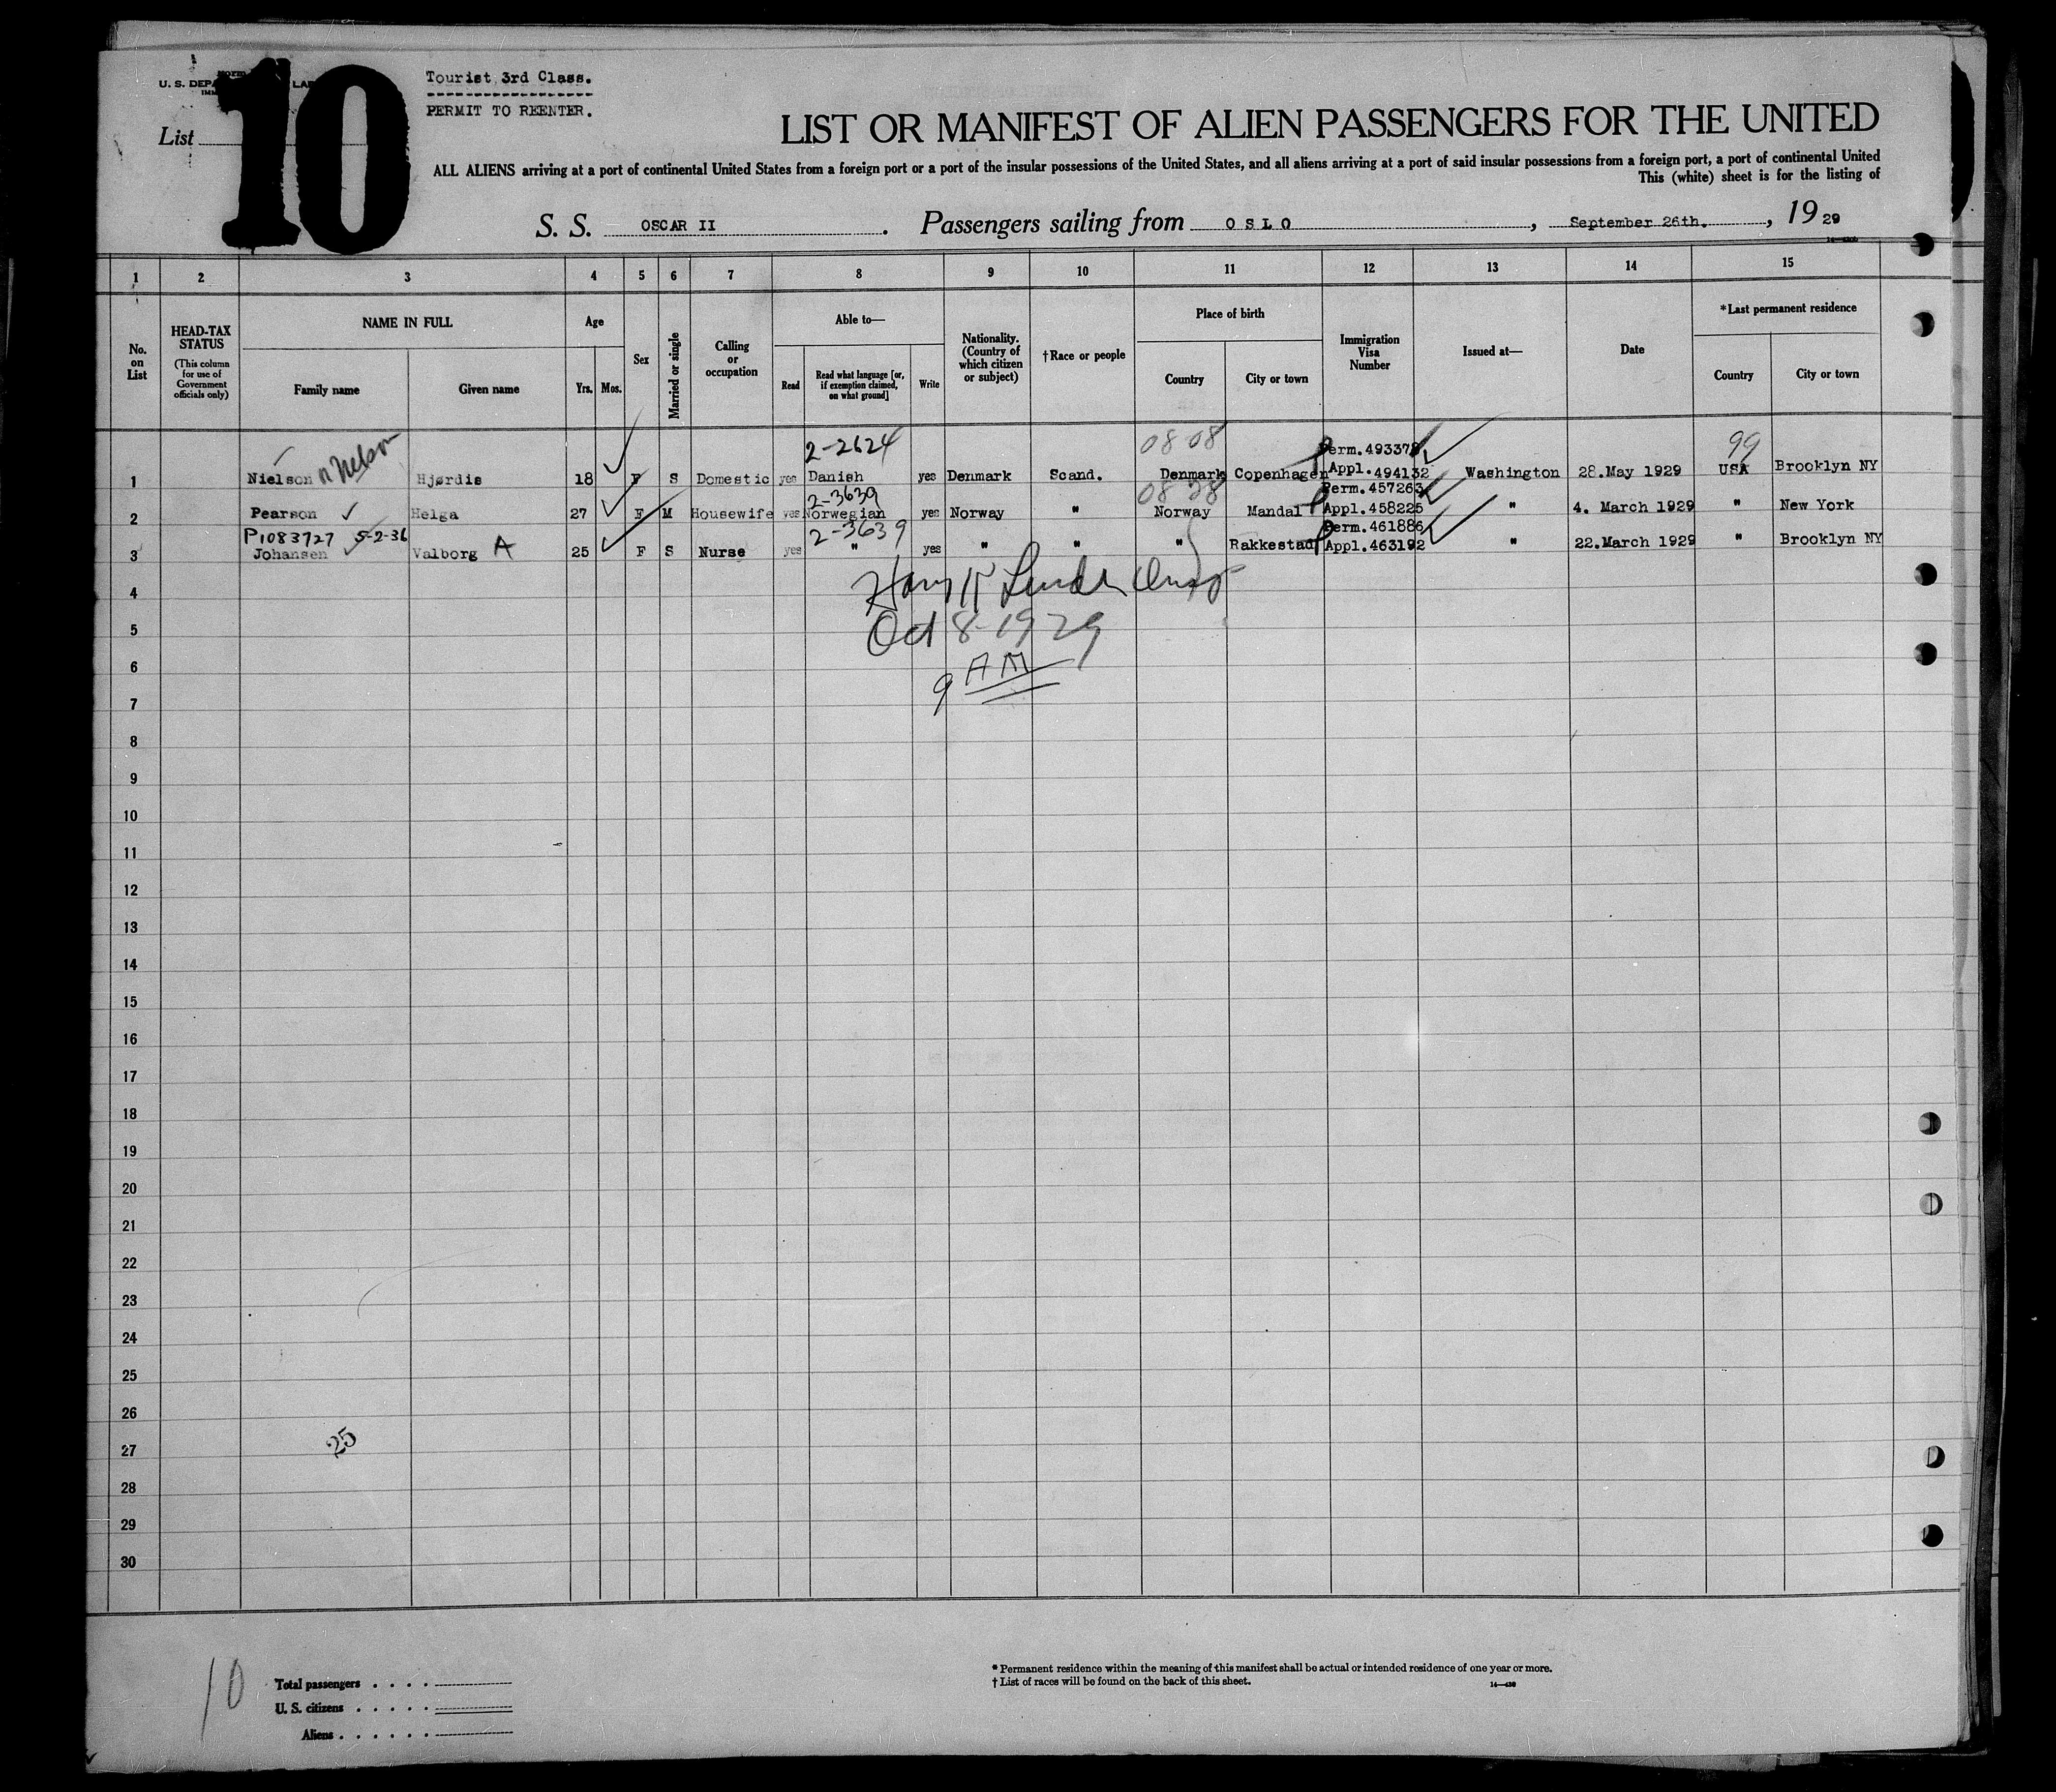 Tourist 3rd Class.
PERMIT TO REENTER.
U. S. DEPA
List
10
LIST OR MANIFEST OF ALIEN PASSENGERS FOR THE UNITED
ALL ALIENS arriving at a port of continental United States from a foreign port or a port of the insular possessions of the United States, and all aliens arriving at a port of said insular possessions from a foreign port, a port of continental United
This (white) sheet is for the listing of
S. S. OSCAR II. Passengers sailing from OSLO, September 26th., 19 29
1 2 3 4 5 6 7 8 9 10 11 12 13 14 15
No. on List
HEAD-TAX STATUS (This column for use of Government officials only)
NAME IN FULL
Family name Given name
Age
Yrs. Mos.
Sex
Married or single
Calling or occupation
Able to—
Read Read what language [or, if exemption claimed, on what ground] Write
Nationality. (Country of which citizen or subject)
†Race or people
Place of birth
Country City or town
Immigration Visa Number
Issued at—
Date
*Last permanent residence
Country City or town
Nelson 2-2624 08 08 Perm.493378 99
1 Nielson Hjørdis 18 F S Domestic yes Danish yes Denmark Scand. Denmark Copenhagen Appl.494132 Washington 28.May 1929 USA Brooklyn NY
2-3639 08 28 Perm.457263
2 Pearson Helga 27 F M Housewife yes Norwegian yes Norway " Norway Mandal Appl.458225 " 4. March 1929 " New York
P1083727 5-2-36 2-3639 Perm.461886
3 Johansen Valborg A 25 F S Nurse yes " yes " " " Rakkestad Appl.463192 " 22.March 1929 " Brooklyn NY
4
5 Oct 8-1929
6 9 AM
7
8
9
10
11
12
13
14
15
16
17
18
19
20
21
22
23
24
25
26
27 25
28
29
30
10
Total passengers
U. S. citizens
Aliens
* Permanent residence within the meaning of this manifest shall be actual or intended residence of one year or more.
† List of races will be found on the back of this sheet.